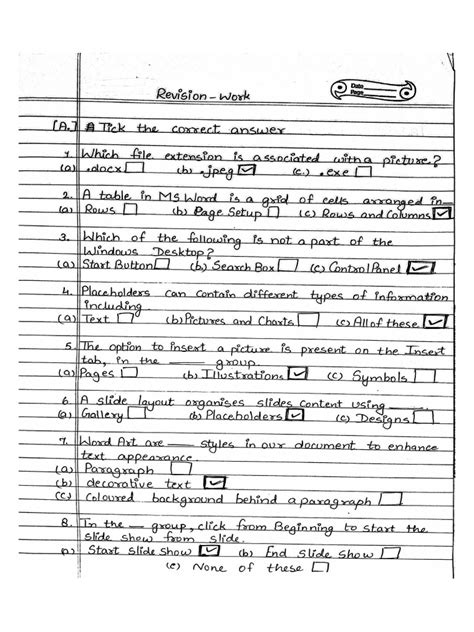 Revision-Work
Date
Page
[A.] Tick the correct answer
1. Which file extension is associated with a picture?
(a) .docx ☐ (b) .jpeg ☑ (c.) .exe ☐
2. A table in MS Word is a grid of cells arranged in—
(a) Rows ☐ (b) Page Setup ☐ (c) Rows and Columns ☑
3. Which of the following is not a part of the
Windows Desktop?
(a) Start Button ☐ (b) Search Box ☐ (c) Control Panel ☑
4. Placeholders can contain different types of information
including
(a) Text ☐ (b) Pictures and Charts ☐ (c) All of these ☑
5. The option to insert a picture is present on the Insert
tab, in the ___ group.
(a) Pages ☐ (b) Illustrations ☑ (c) Symbols ☐
6. A slide layout organises slides content using ___
(a) Gallery ☐ (b) Placeholders ☑ (c) Designs ☐
7. Word Art are ___ styles in our document to enhance
text appearance.
(a) Paragraph ☐
(b) decorative text ☑
(c) Coloured background behind a paragraph ☐
8. In the ___ group, click from Beginning to start the
slide show from slide.
(a) Start slide show ☑ (b) End slide show ☐
(c) None of these ☐